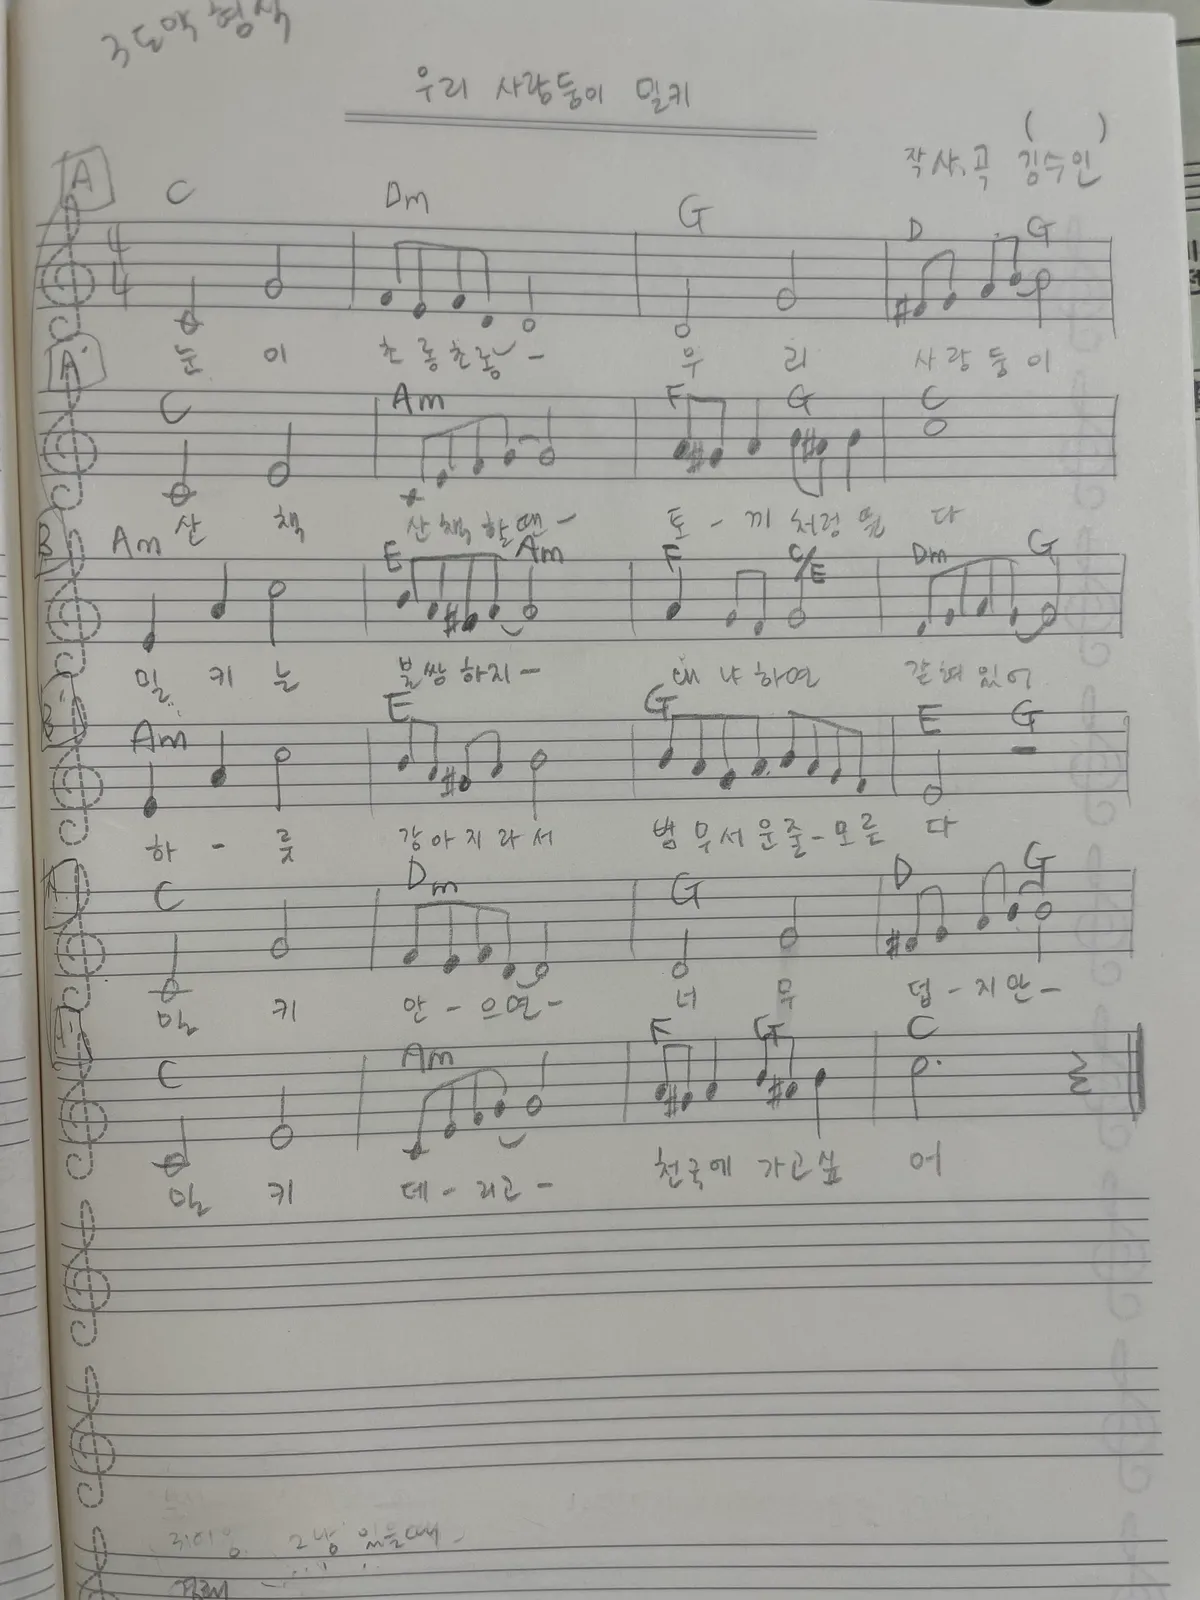 3도막 형식
우리 사랑둥이 밀키
( )
작사.곡 김수인
A C Dm G D G
4
4
눈 이 초롱초롱 - 우 리 사랑둥이
A' C Am F G C
산 책 산책할땐 - 토 - 끼 처럼 뛴 다
B Am E Am F C/E Dm G
밀 키 는 불쌍하지 - 왜냐하면 갇혀있어
B' Am E G E G
하 - 룻 강아지라서 범무서운줄 - 모른 다
C Dm G D G
밀 키 안 - 으면 - 너 무 덥 - 지만 -
C Am F G C
밀 키 데 - 리고 - 천국에 가고싶 어
그냥 있을때